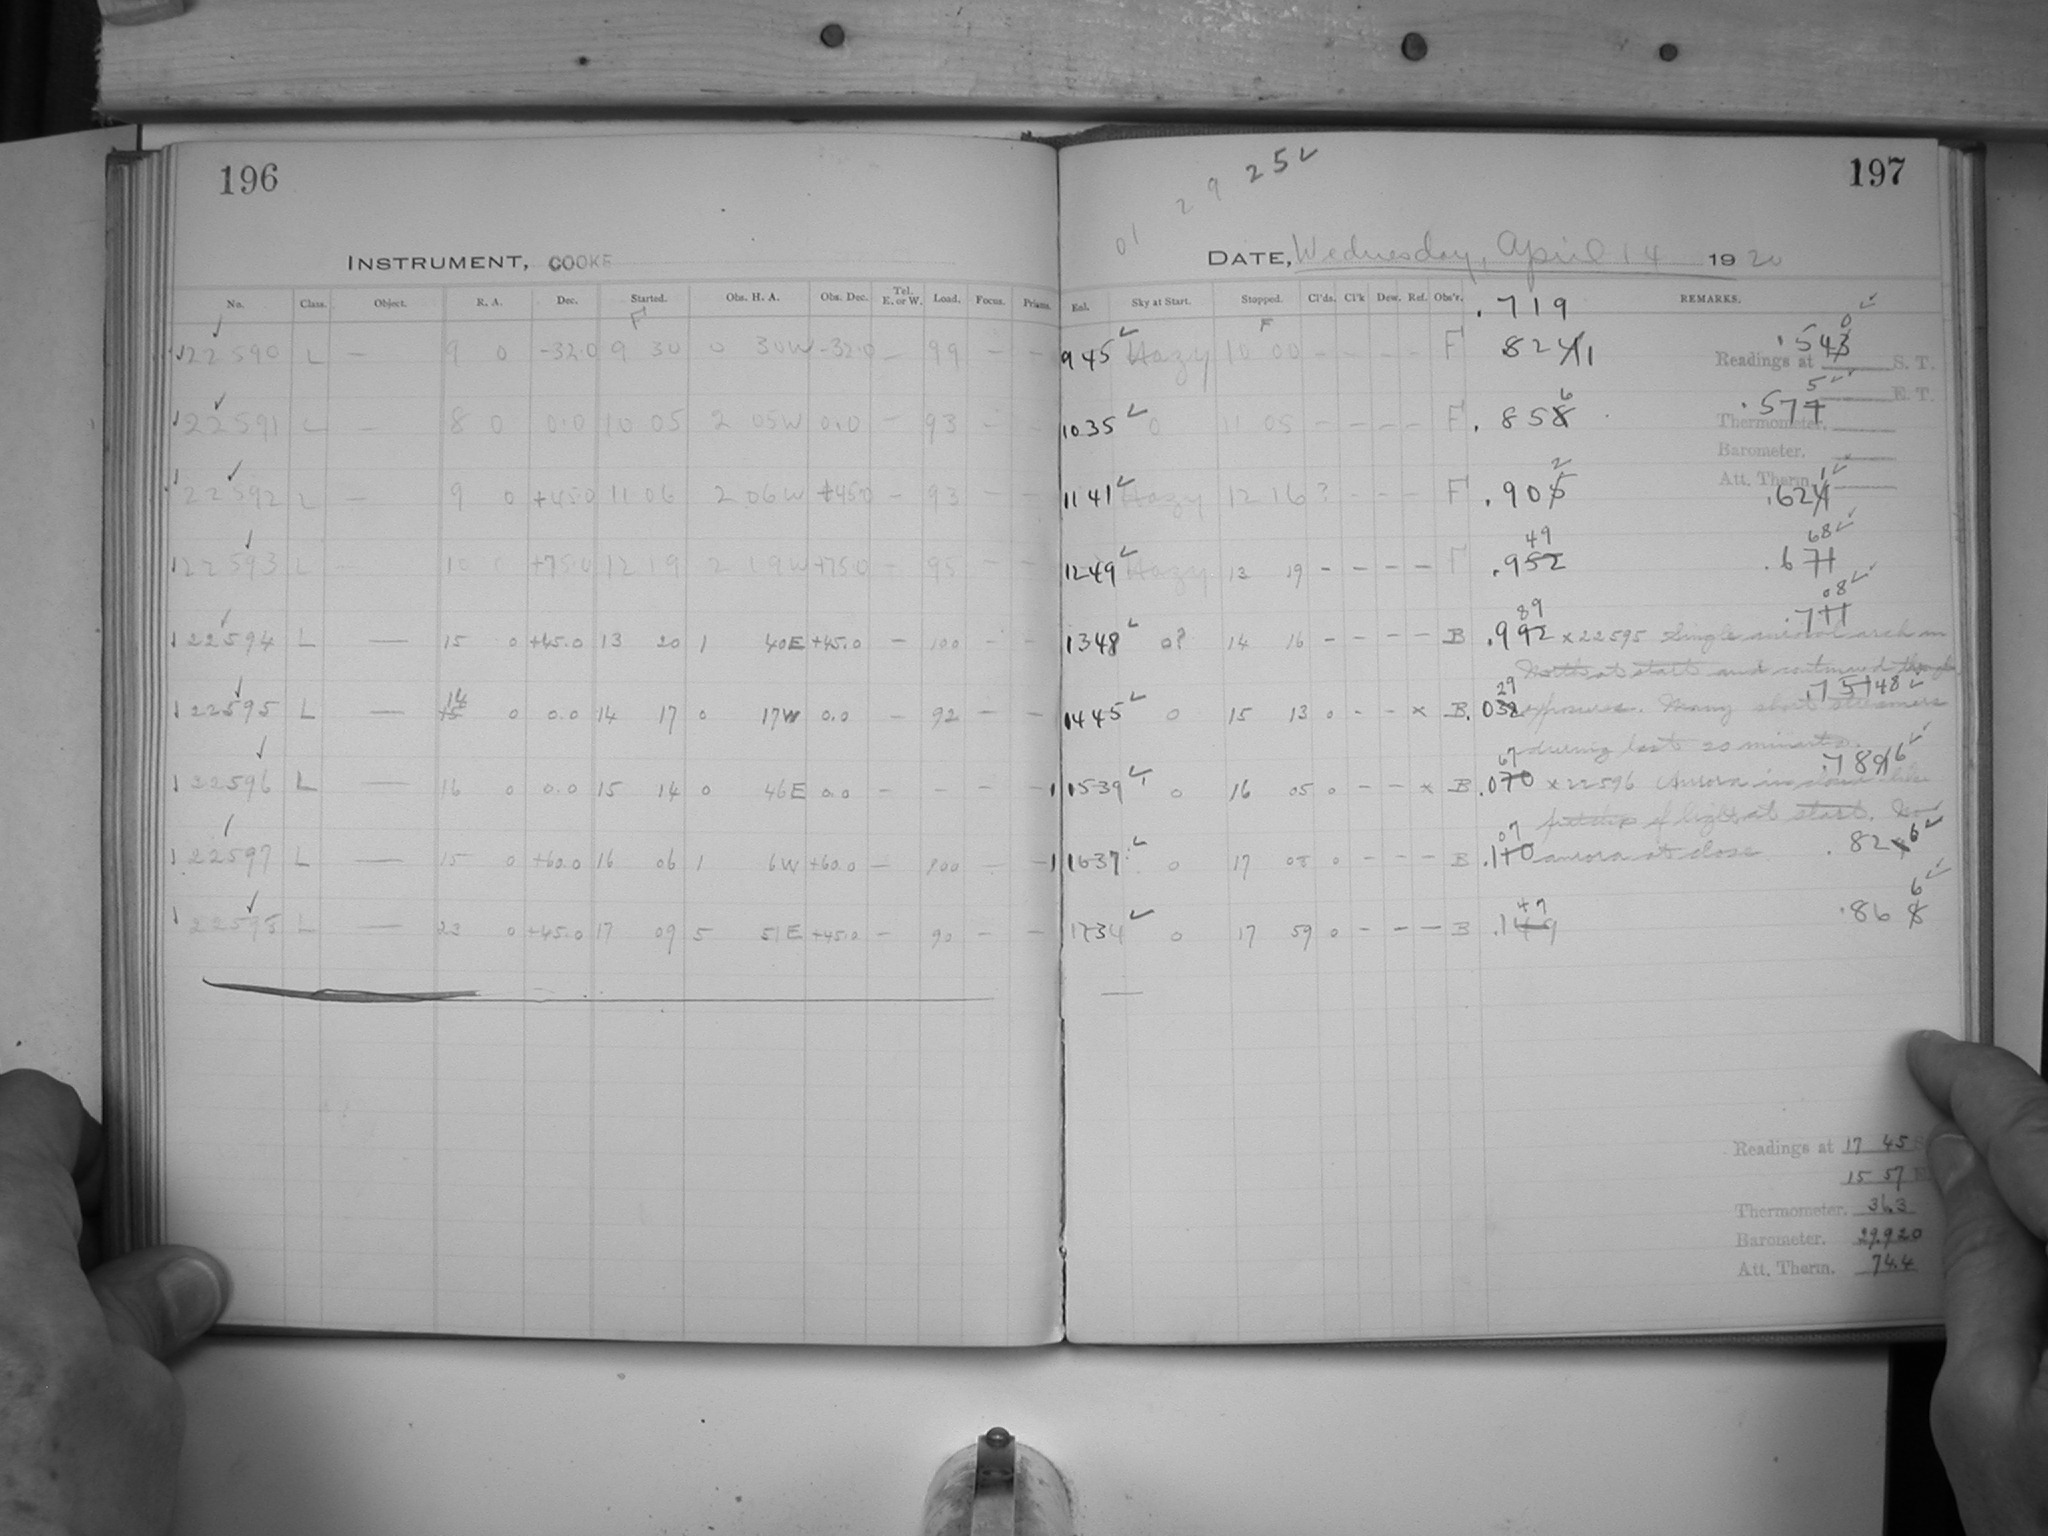 196
INSTRUMENT, COOKE
No. Class. Object. R. A. Dec. Started. Obs. H. A. Obs. Dec. Tel. E. or W. Load. Focus. Prisms.
F
22590 L — 9 0 -32.0 9 30 0 30W -32.0 — 99 — —
22591 L — 8 0 0.0 10 05 2 05W 0.0 — 93 — —
22592 L — 9 0 +45.0 11 06 2 06W +45.0 — 93 — —
22593 L — 10 0 +75.0 12 19 2 19W +75.0 — 95 — —
22594 L — 15 0 +45.0 13 20 1 40E +45.0 — 100 — —
22595 L — 14 0 0.0 14 17 0 17W 0.0 — 92 — —
22596 L — 16 0 0.0 15 14 0 46E 0.0 — — — —
22597 L — 15 0 +60.0 16 06 1 6W +60.0 — 100 — —
22598 L — 23 0 +45.0 17 09 5 51E +45.0 — 90 — —
197
01 29 25 ✓
DATE, Wednesday, April 14 1920
Exl. Sky at Start. Stopped. Cl'ds. Cl'k Dew. Ref. Obs'r. REMARKS.
.719
F
945 ✓ Hazy 10 00 — — — — F 824 1 .543 0 ✓
Readings at S. T.
E. T.
1035 ✓ 0 11 05 — — — — F .858 6 .577 5 ✓
Thermometer.
Barometer.
Att. Therm.
1141 ✓ Hazy 12 16 ? — — — F .905 2 .624 1 ✓
1249 ✓ Hazy 13 19 — — — — F .952 49 .671 68 ✓
1348 ✓ 0? 14 16 — — — — B .992 89 .711 08 ✓
x 22595 Single auroral arch in
North at start and continued through
1445 ✓ 0 15 13 0 — — x B .032 29 .751 48 ✓
exposures. Many short streamers
during last 20 minutes.
1539 ✓ 0 16 05 0 — — x B .070 67 .789 6 ✓
x 22596 Aurora in cloud like
of light at start. No
1637 ✓ 0 17 08 0 — — — B .110 07 .82 6 ✓
aurora at close
1734 ✓ 0 17 59 0 — — — B .149 47 .868 6 ✓
Readings at 17 45 S
15 57
Thermometer. 36.3
Barometer. 29.920
Att. Therm. 74.4